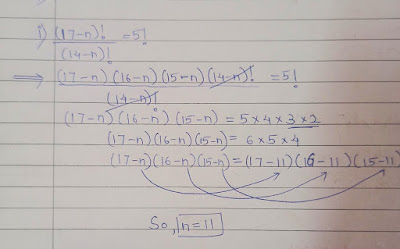 i) (17-n)! = 5!
(14-n)!
⟹ (17-n)(16-n)(15-n)(14-n)! = 5!
(14-n)!
(17-n)(16-n)(15-n) = 5×4×3×2
(17-n)(16-n)(15-n) = 6×5×4
(17-n)(16-n)(15-n) = (17-11)(16-11)(15-11)
So, n=11